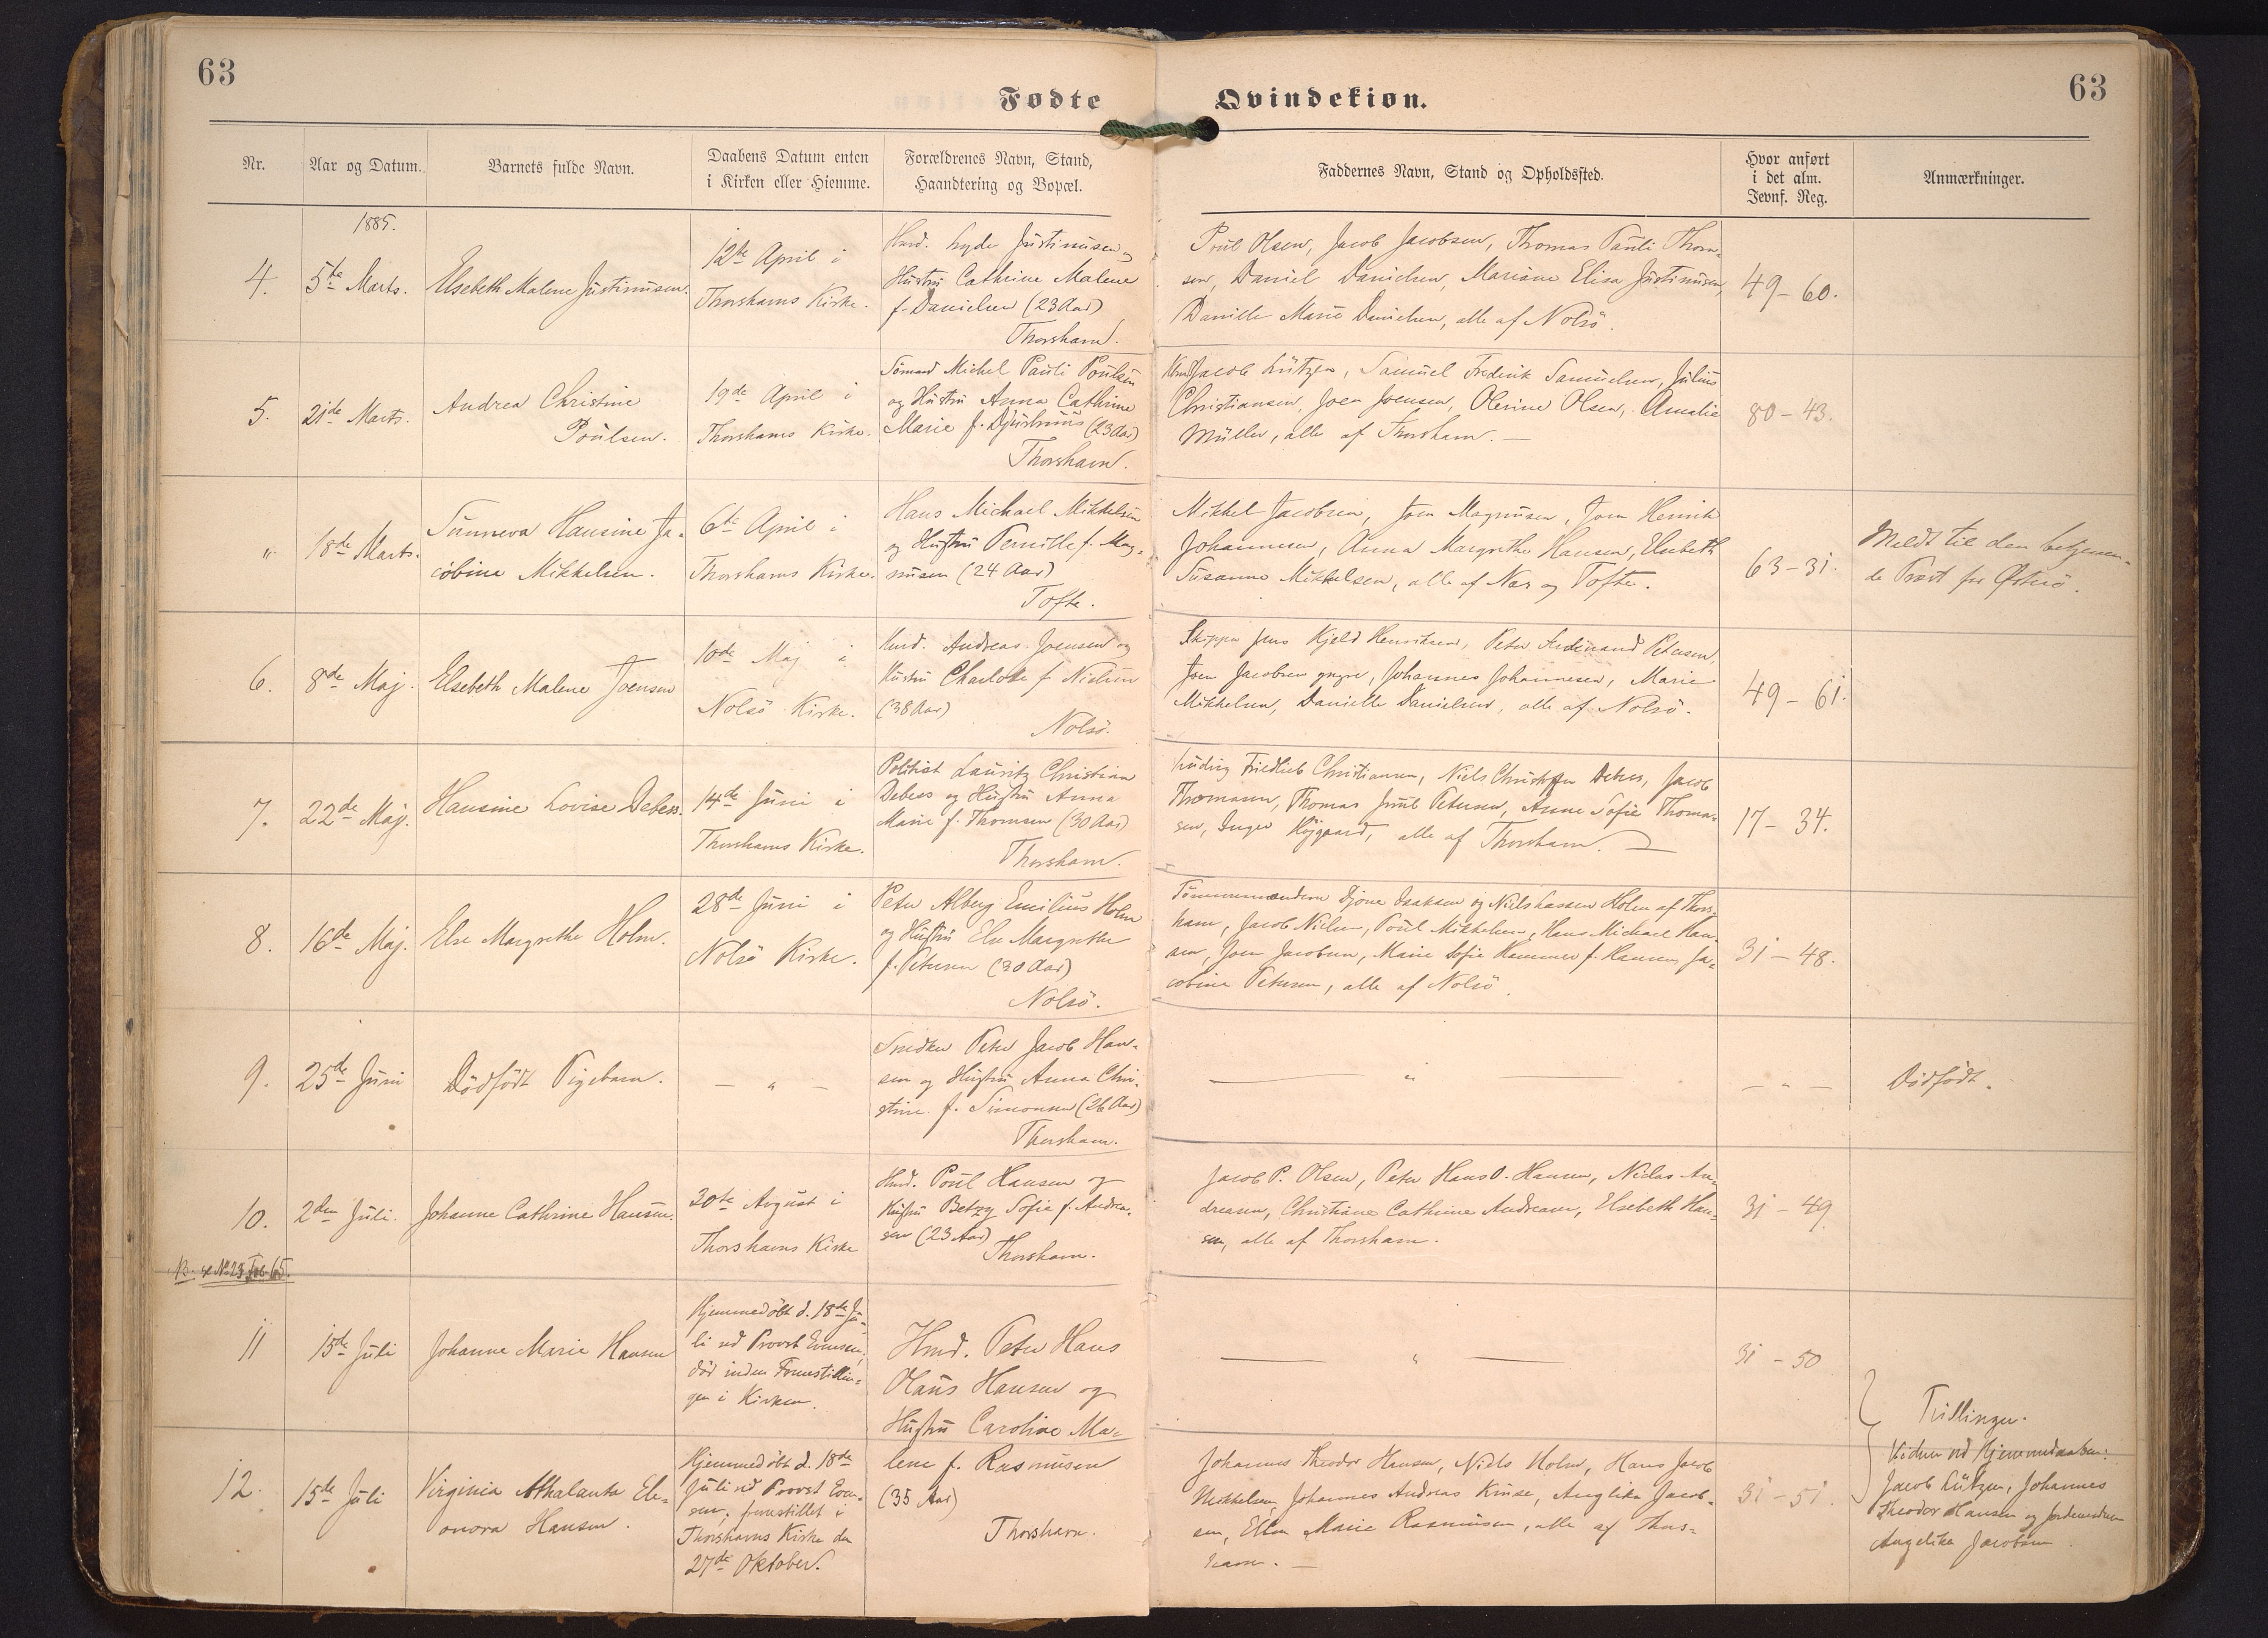 63
63
Fødte
Qvindekiøn.
Nr.
Aar og Datum.
Barnets fulde Navn.
Daabens Datum enten
i Kirken eller Hiemme.
Forældrenes Navn, Stand,
Haandtering og Bopæl.
Faddernes Navn, Stand og Opholdssted.
Hvor anført
i det alm.
Jevnf. Reg.
Anmærkninger.
1885.
4.
5te Marts.
Elsebeth Malene Justinusen.
12te April i
Thorshavns Kirke.
Justinusen og
Hustru Cathrine Malene
f. Danielsen (23 Aar)
Thorshavn.
Poul Olsen, Jacob Jacobsen, Thomas Pauli Thom-
sen, Daniel Danielsen, Mariane Elisa Justinusen,
Danielle Marie Danielsen, alle af Nolsö.
49-60.
5.
21de Marts.
Andrea Christine
Poulsen.
19de April i
Thorshavns Kirke.
Sömand Michel Pauli Poulsen
og Hustru Anna Cathrine
Marie f. (23 Aar)
Thorshavn.
Jacob Lützen, Samuel Frederik Samuelsen, Julius
Christiansen, Joen Joensen, Olevine Olsen, Amalie
Müller, alle af Thorshavn. —
80-43.
"
18de Marts.
Sunneva Hansine Ja-
cobine Mikkelsen.
6te April i
Thorshavns Kirke.
Hans Michael Mikkelsen
og Hustru Pernille f. Mag-
nusen (24 Aar)
Tofte.
Mikkel Jacobsen, Joen Magnusen, Joen Henrik
Johannesen, Anna Margrethe Hansen, Elsebeth
Susanne Mikkelsen, alle af Næs og Tofte.
63-31.
Meldt til den betjenen-
de Præst for Østerö.
6.
8de Maj.
Elsebeth Malene Joensen
10de Maj i
Nolsö Kirke.
Hmd. Andreas Joensen og
Hustru Charlotte f. Nielsen
(38 Aar)
Nolsö.
Skipper Jens Kjeld Henriksen, Peter Ferdinand Petersen,
Joen Jacobsen yngre, Johannes Johannesen, Marie
Mikkelsen, Danielle Danielsen, alle af Nolsö.
49-61.
7.
22de Maj.
Hansine Lovise Debess.
14de Juni i
Thorshavns Kirke.
Politist Lauritz Christian
Debess og Hustru Anna
Marie f. Thomsen (30 Aar)
Thorshavn.
Ludvig Friedlieb Christiansen, Niels Christoffer Debess, Jacob
Thomasen, Thomas Juul Petersen, Anne Sofie Thoma-
sen, Inger Höjgaard, alle af Thorshavn.
17-34.
8.
16de Maj.
Else Margrethe Holm.
28de Juni i
Nolsö Kirke.
Peter Alberg Emilius Holm
og Hustru Else Margrethe
f. Petersen (30 Aar)
Nolsö.
Tömmermændene Djone Isaksen og Niels Lassen Holm af Thors-
havn, Jacob Nielsen, Poul Mikkelsen, Hans Michael Han-
sen, Joen Jacobsen, Marie Sofie Hammer f. Hansen, Ja-
cobine Petersen, alle af Nolsö.
31-48.
9.
25de Juni
Dödfödt Pigebarn.
— " —
Snedker Peter Jacob Han-
sen og Hustru Anna Chri-
stine f. Simonsen (26 Aar)
Thorshavn.
— " —
— " —
Dödfödt.
10.
2den Juli.
Johanne Cathrine Hansen.
30te August i
Thorshavns Kirke
Hmd. Poul Hansen og
Hustru Betzy Sofie f. Andrea-
sen (23 Aar)
Thorshavn.
Jacob P. Olsen, Peter Hans O. Hansen, Niclas An-
dreasen, Christiane Cathrine Andreasen, Elsebeth Han-
sen, alle af Thorshavn.
31-49.
11
15de Juli
Johanne Marie Hansen
Hjemmedöbt d. 18de Ju-
li ved Provst Evensen,
död inden Fremstillin-
gen i Kirken.
Hmd. Peter Hans
Olaus Hansen og
Hustru Caroline Ma-
lene f. Rasmusen
(35 Aar)
Thorshavn.
— " —
31-50
12.
15de Juli
Virginia Athalanta Ele-
onora Hansen.
Hjemmedöbt d. 18de
Juli ved Provst Even-
sen, fremstillet i
Thorshavns Kirke den
27de Oktober.
Johannes Theodor Hansen, Niels Holm, Hans Jacob
Mikkelsen, Johannes Andreas Kruse, Anglika Jacob-
sen, Ellen Marie Rasmusen, alle af Thors-
havn. —
31-51.
Tvillinger.
Vidner ved Hjemmedaaben:
Jacob Lützen, Johannes
Theodor Hansen og Jordemoderen
Angelika Jacobsen